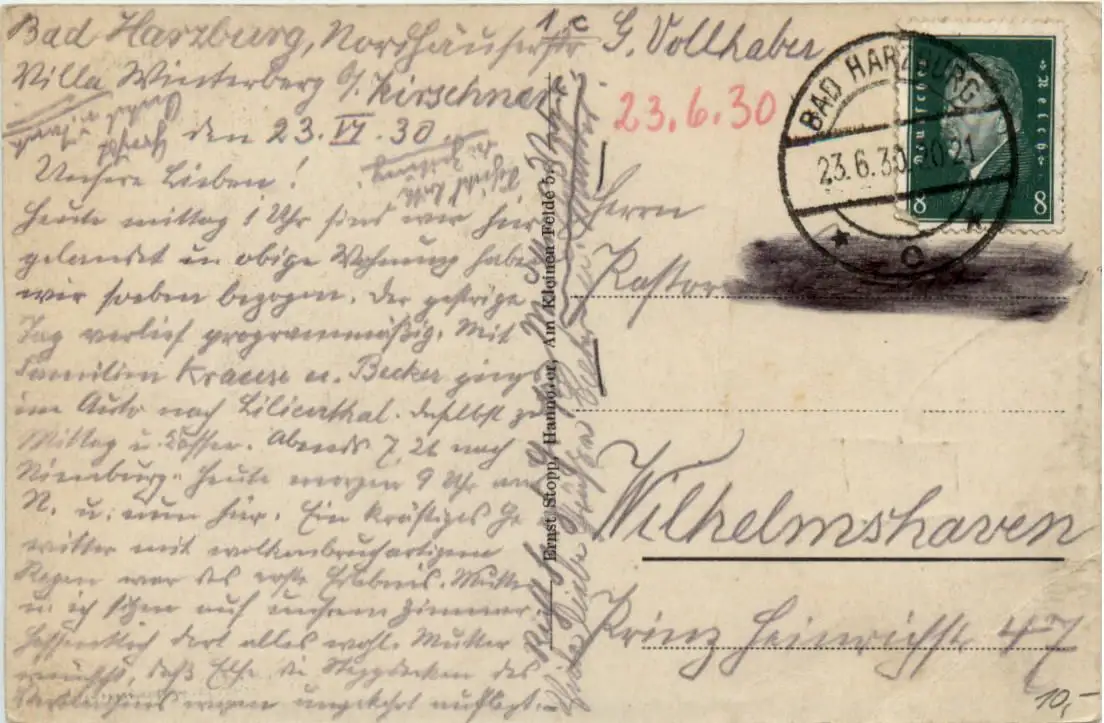 Bad Harzburg, Nordhäuserstr 1 c G. Vollhaber
Villa Winterberg b/. Kirschner
den 23. VI. 30.
Unsere Lieben!
Heute mittag 1 Uhr sind wir hier
gelandet u. obige Wohnung haben
wir soeben bezogen. Der gestrige
Tag verlief programmäßig. Mit
Familien Krause u. Becker gings
im Auto nach Lilienthal. Daselbst zu
Mittag u. Kaffee. Abends 7.26 nach
Nienburg. Heute morgen 9 Uhr an
N. u. nun hier. Ein kräftiges Ge
witter mit wolkenbruchartigem
Regen war das erste Erlebnis. Mutter
u. ich sitzen auf unserm Zimmer.
Hoffentlich dort alles wohl. Mutter
wünscht, daß Else die Steppdecken des
umgekehrt auflegt.
Ernst Stopp, Hannover, Am Kleinen Felde 5.
23.6.30
BAD HARZBURG
23.6.30.20-21
o
Deutsches Reich
8 8
Herrn
Pastor
Wilhelmshaven
Prinz Heinrichstr. 47
10,-